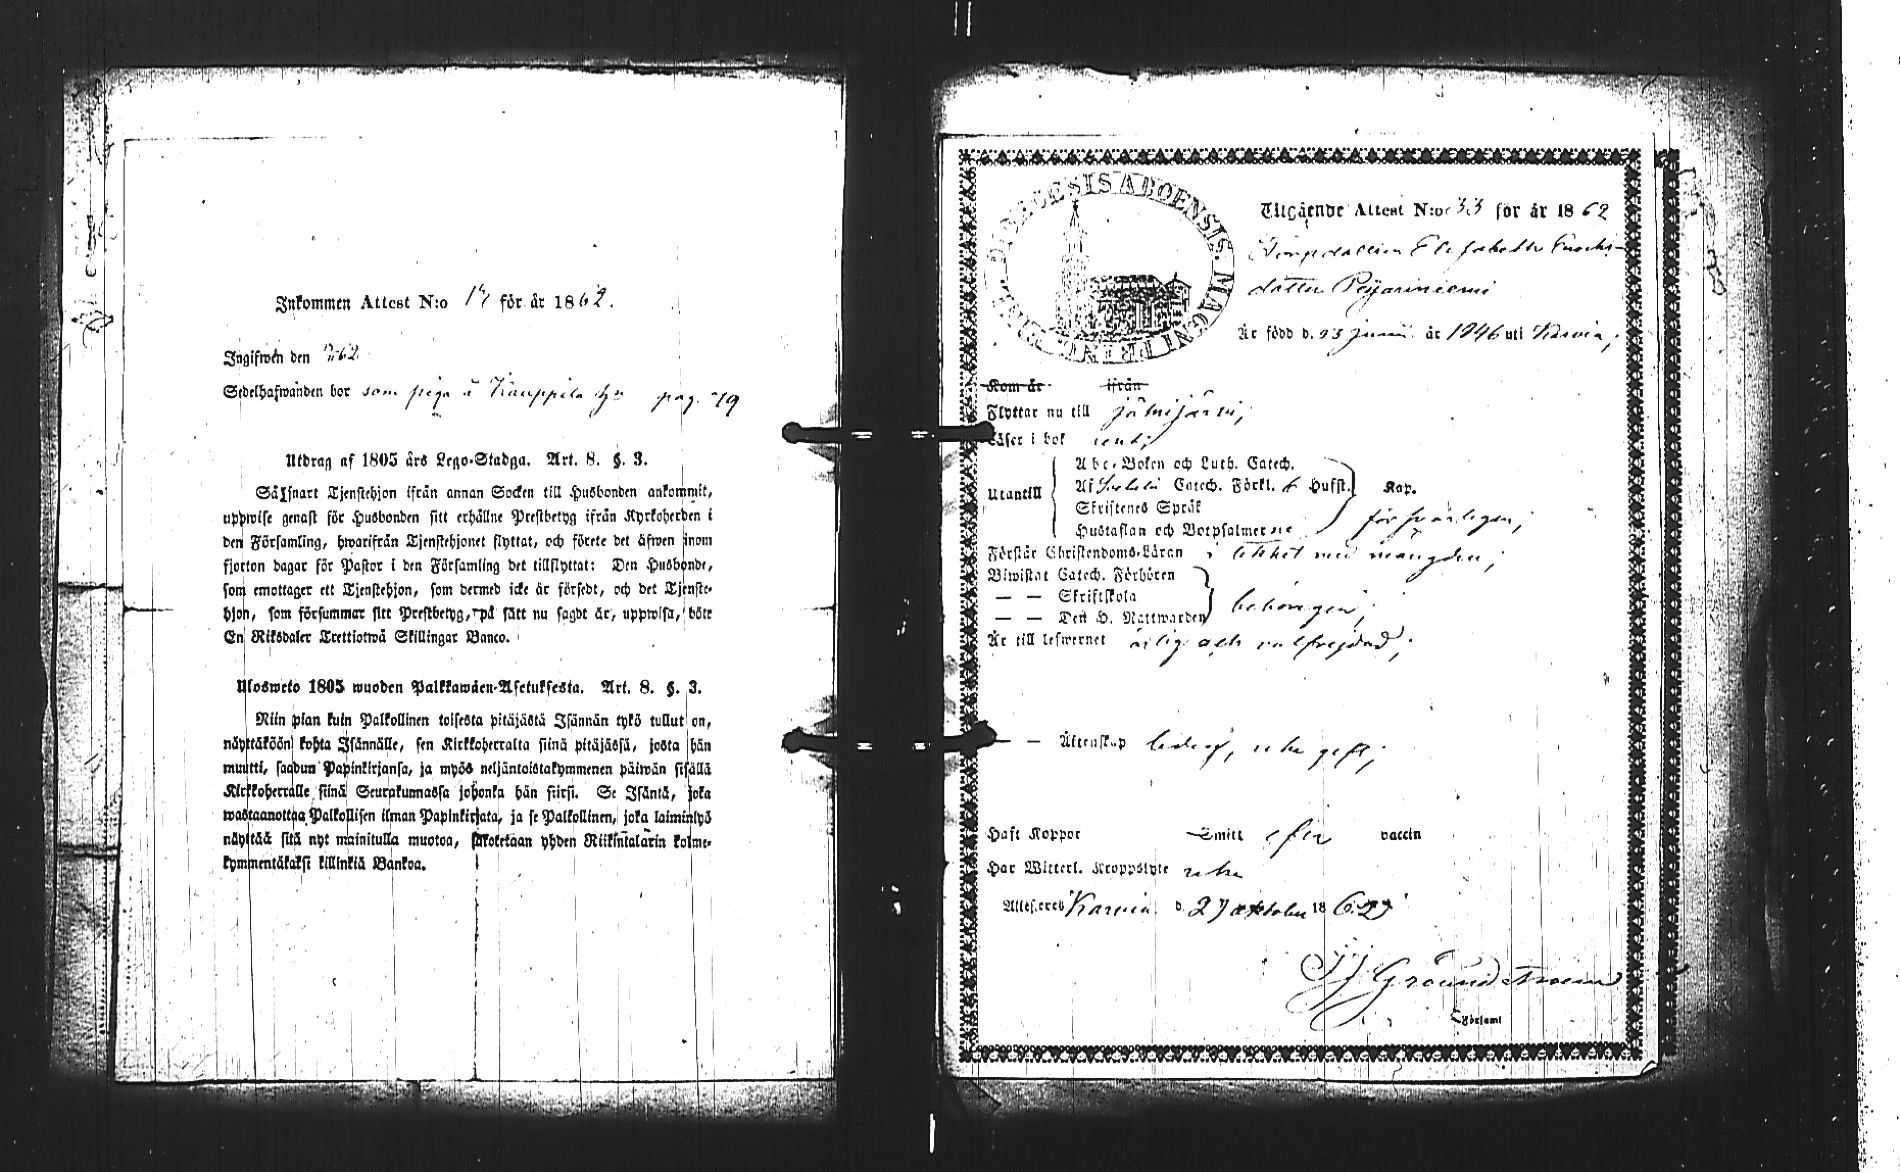 Inkommen Attest N:o 17 för år 1862.
Ingifwen den 62
Sedelhafwanden bor som piga å Kauppila pag. 79
Utdrag af 1805 års Lego-Stadga. Art. 8. §. 3.
Såsnart Tjenstehjon ifrån annan Socken till Husbonden ankommit,
uppwise genast för Husbonden sitt erhållne Prestbetyg ifrån Kyrkoherden i
den Församling, hwarifrån Tjenstehjonet flyttat, och förete det äfwen inom
fjorton dagar för Pastor i den Församling det tillflyttat: Den Husbonde,
som emottager ett Tjenstehjon, som dermed icke är försedt, och det Tjenste-
hjon, som försummar sitt Prestbetyg, på sätt nu sagdt är, uppwisa, böte
En Riksdaler Trettiotwå Skillingar Banco.
Ulosweto 1805 wuoden Palkkawäen-Asetuksesta. Art. 8. §. 3.
Niin pian kuin Palkollinen toisesta pitäjästä Isännän tykö tullut on,
näyttäköön kohta Isännälle, sen Kirkkoherralta siinä pitäjässä, josta hän
muutti, saadun Papinkirjansa, ja myös neljäntoistakymmenen päiwän sisällä
Kirkkoherralle siinä Seurakunnassa johonka hän siirsi. Se Isäntä, joka
wastaanottaa Palkollisen ilman Papinkirjata, ja se Palkollinen, joka laiminlyö
näyttää sitä nyt mainitulla muotoa, sakotetaan yhden Riikintalarin kolme-
kymmentäkaksi killinkiä Bankoa.
DIOECESIS ABOENSIS. MAGNI PRINC. FINL.
Utgående Attest N:o 33 för år 1862
Elisabeth Enochs-
dotter Peijariniemi
Är född d. 23 Juni år 1846 uti Karvia,
Kom år ifrån
Flyttar nu till Jämijärvi,
Läser i bok
Utantill
Abc-Boken och Luth. Catech.
Af Catech. Förkl. Hufst. Kap.
Skriftenes Språk
Hustaflan och Botpsalmerne försvarligen,
Förstår Christendoms-Läran i likhet med mängden,
Biwistat Catech. Förhören
— — Skriftskola
— — Den H. Nattwarden behörigen,
Är till lefwernet ärlig och välfrejdad,
— — Äktenskap ledig, icke gift,
Haft Koppor Smitt efter vaccin
Har Witterl. Kroppslyte icke
Attesteras Karvia d. 27 oktober 1862,
Grönndstroem